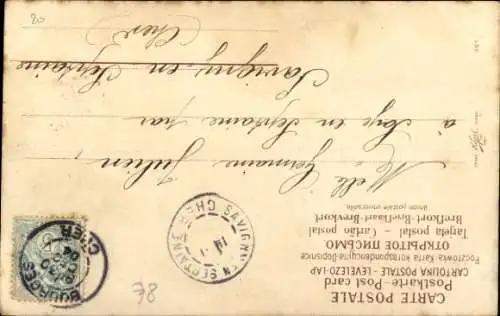 CARTE POSTALE
Postkarte - Post card
CARTOLINA POSTALE - LEVELEZŐ-LAP
Pocztówka - Karta korespondencyjna - Dopisnice
ОТКРЫТОЕ ПИСЬМО
Tarjeta postal - Cartão postal
Brefkort - Briefkaart - Brevkort
Union postale universelle
Melle Germaine Julien,
à Soye en Septaine par
Savigny en Septaine
Cher
SAVIGNY-EN-SEPTAINE
CHER
BOURGES
CHER
78
20